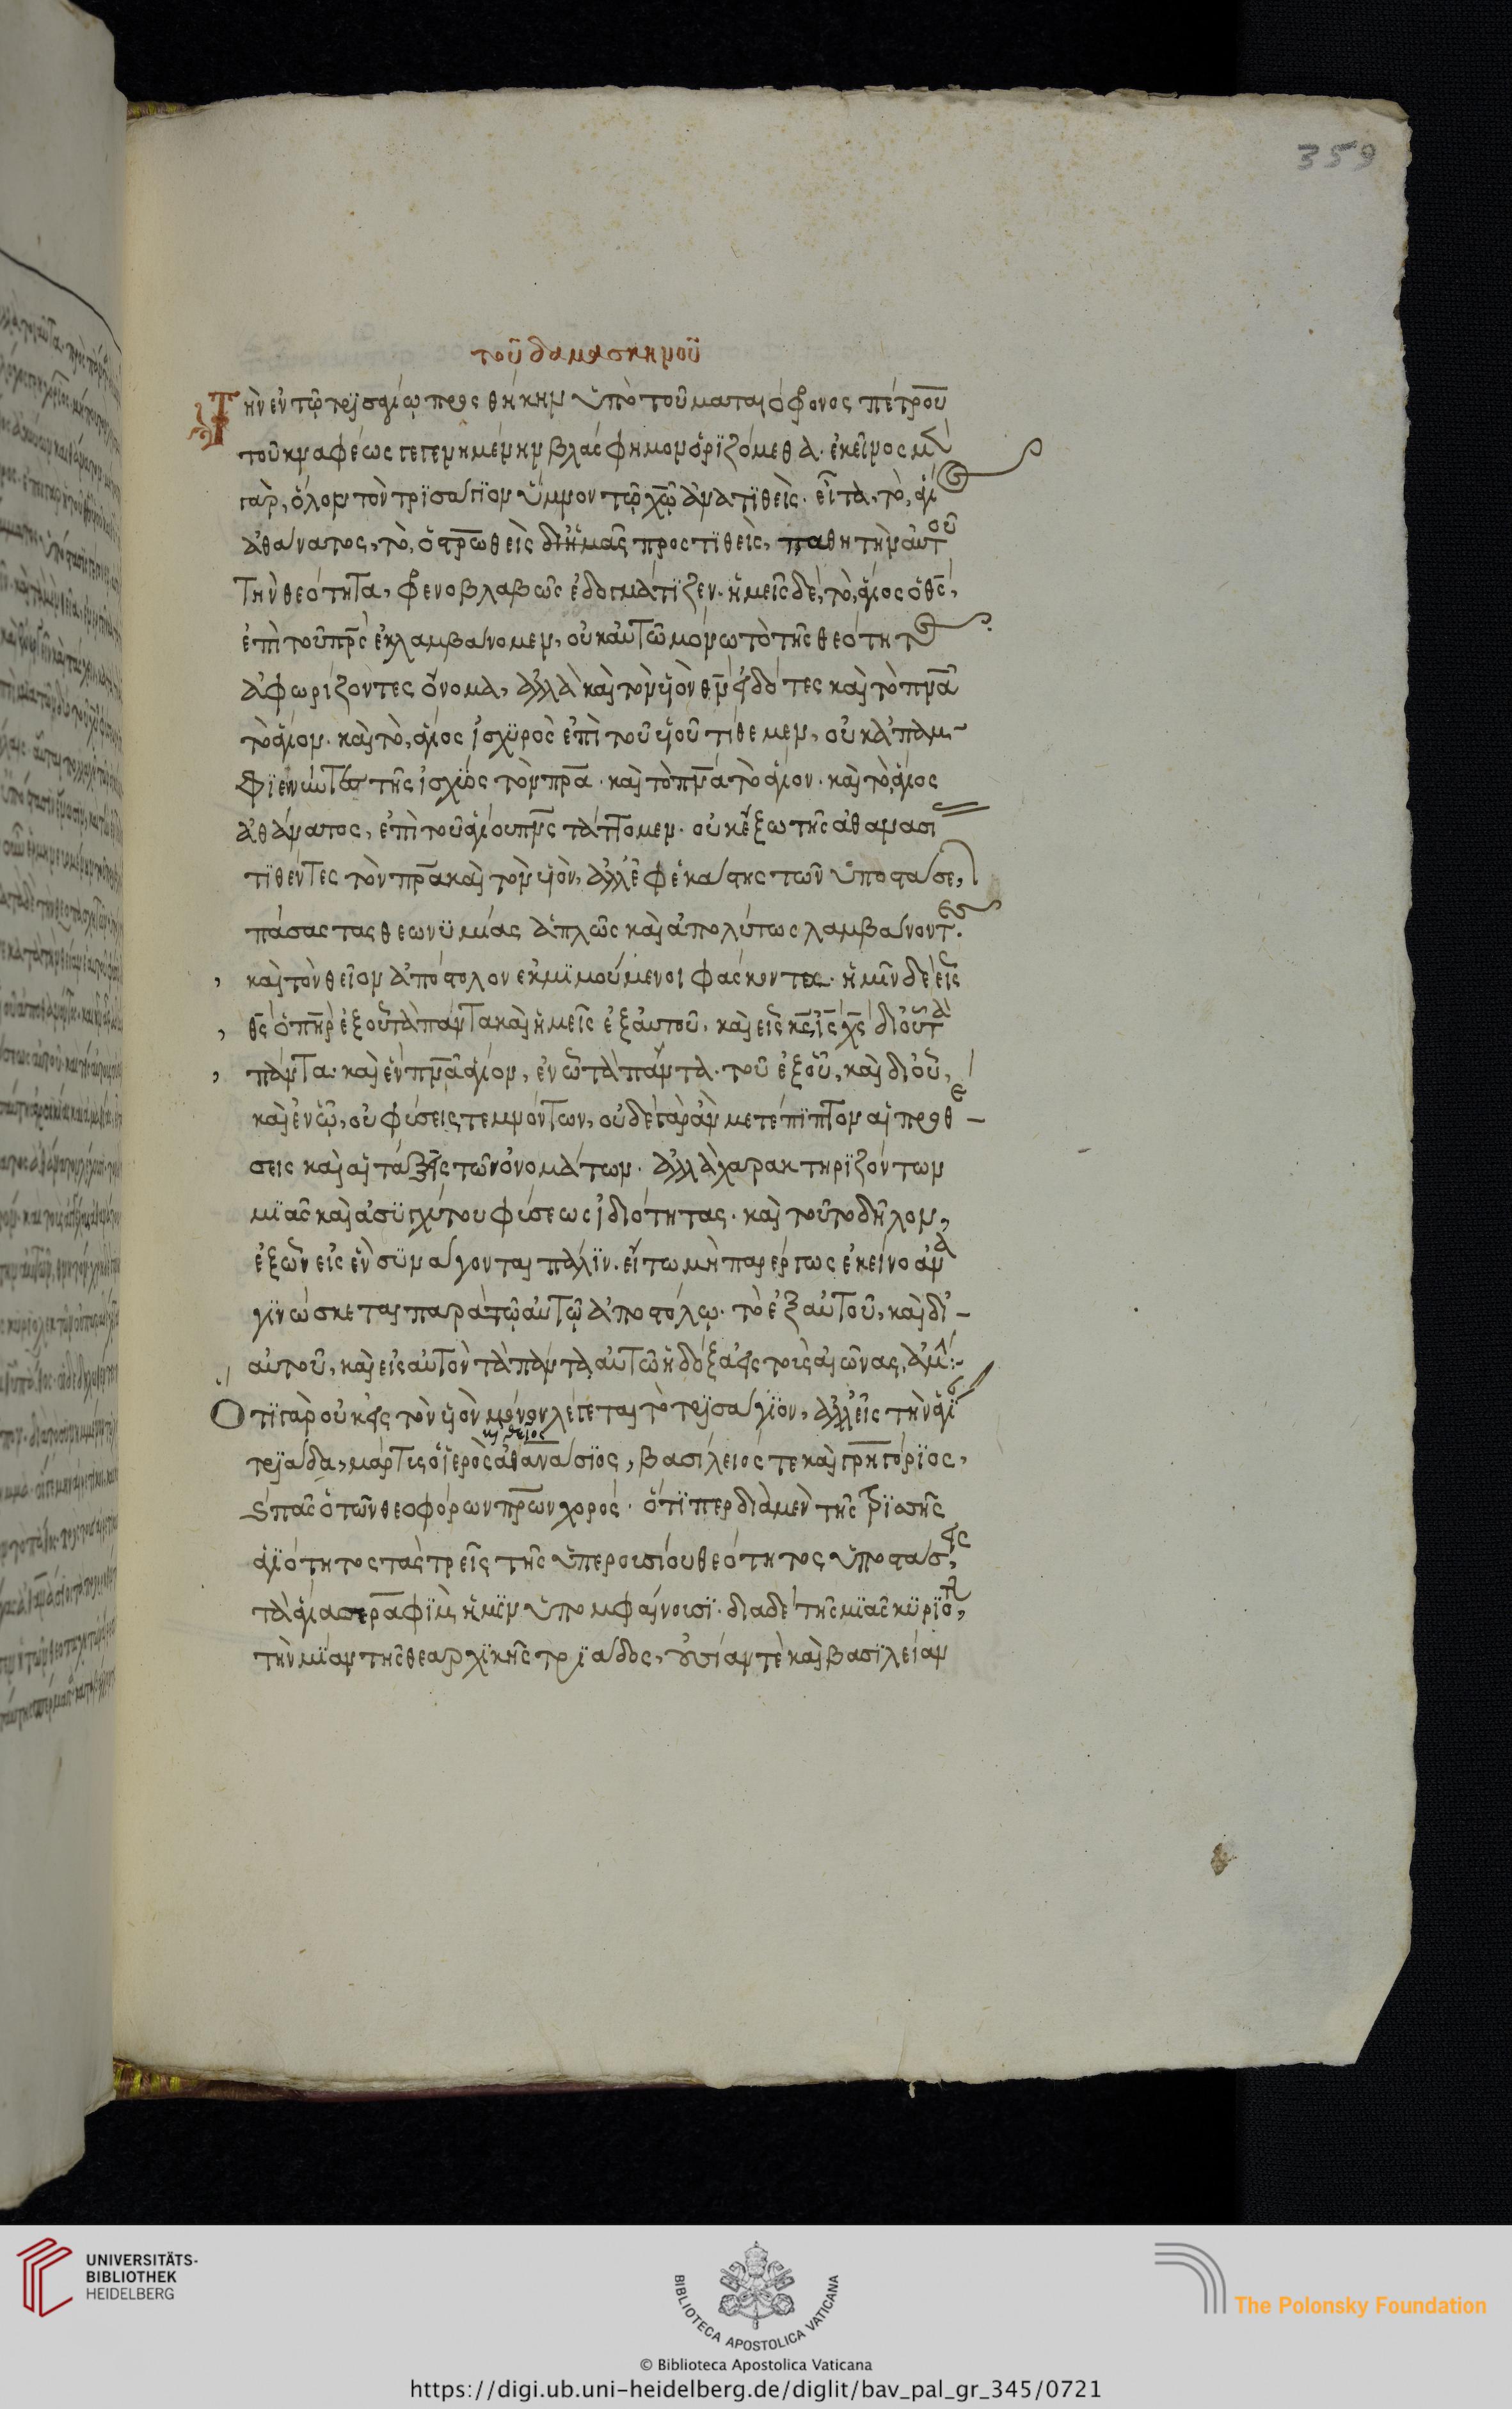 359
τοῦ δαμασκηνοῦ
Τὴν ἐν τῶ τρισαγίω προσθήκην ὑπὸ τοῦ ματαιόφρονος πέτρου
τοῦ κναφέως γεγενημένην βλάσφημον ὁριζόμεθα· ἐκεῖνος μὲν
γὰρ, ὅλον τὸν τρισάγιον ὕμνον τῶ χῶ ἀνατιθεὶς· εἶτα, τὸ, ἅγιος
ἀθάνατος, τὸ, ὁ σταυρωθεὶς δι ἡμᾶς προστιθεὶς, παθητὴν αὐτοῦ
τὴν θεότητα, φρενοβλαβῶς ἐδογμάτιζεν· ἡμεῖς δὲ, τὸ, ἅγιος ὁ θς,
ἐπὶ τοῦ πρς ἐκλαμβάνομεν, οὐκ αὐτῶ μόνω τὸ τῆς θεότητος
ἀφωρίζοντες ὄνομα, ἀλλὰ καὶ τὸν υἱὸν θν εἰδότες καὶ τὸ πνα
τὸ ἅγιον· καὶ τὸ, ἅγιος ἰσχυρὸς ἐπὶ τοῦ υἱοῦ τίθεμεν, οὐκ ἀπαμ-
φιεννῶντες τῆς ἰσχύος τὸν πρα· καὶ τὸ πνα τὸ ἅγιον· καὶ τὸ, ἅγιος
ἀθάνατος, ἐπὶ τοῦ ἁγίου πνς τάττομεν· οὐκ ἔξω τῆς ἀθανασίας
τιθέντες τὸν πρα καὶ τὸν υἱὸν, ἀλλ ἐφ ἑκάστης τῶν ὑποστάσε,
πάσας τας θεωνυμίας ἁπλῶς καὶ ἀπολύτως λαμβάνοντες.
καὶ τὸν θεῖον ἀπόστολον ἐκμιμούμενοι φάσκοντες· ἡμῖν δὲ εἷς
θς ὁ πηρ ἐξ οὗ τὰ πάντα καὶ ἡμεῖς ἐξ αὐτοῦ, καὶ εἷς κς, ις χς δι οὗ τὰ
πάντα· καὶ ἓν πνα ἅγιον, ἐν ὧ τὰ πάντα· τοῦ ἐξ οὗ, καὶ δι οὗ,
καὶ ἐν ᾧ, οὐ φύσεις τεμνόντων, οὐδὲ γὰρ ἂν μετέπιπτον αἱ προθέ-
σεις καὶ αἱ τάξεις τῶν ὀνομάτων· ἀλλὰ χαρακτηριζόντων
μιᾶς καὶ ἀσυγχύτου φύσεως ἰδιότητας· καὶ τοῦτο δῆλον,
ἐξ ὧν εἰς ἓν συνάγονται πάλιν· εἴ τω μὴ παρέργως ἐκεῖνο ἀνα
γινώσκεται παρὰ τῶ αὐτῶ ἀποστόλω· τὸ ἐξ αὐτοῦ, καὶ δι -
αὐτοῦ, καὶ εἰς αὐτὸν τὰ πάντα, αὐτῶ ἡ δόξα εἰς τοὺς αἰῶνας, ἀμήν :-
Ὅτι γὰρ οὐκ εἰς τὸν υἱὸν μόνον λέγεται τὸ τρισάγιον, ἀλλ εἰς τὴν ἁγίαν
τριάδα, μάρτυς ὁ ἱερὸς καὶ θεῖος ἀθανάσιος, βασίλειός τε καὶ γρηγόριος,
καὶ πᾶς ὁ τῶν θεοφόρων πρων χορός· ὅτι περ διὰ μὲν τῆς τρισσῆς
ἁγιότητος τὰς τρεῖς τῆς ὑπερουσίου θεότητος ὑποστάσεις,
τὰ ἅγια σεραφὶμ, ἡμῖν ὑπομφαίνουσι· δια δὲ τῆς μιᾶς κυριότη,
τὴν μίαν τῆς θεαρχικῆς τριάδος, οὐσίαν τὲ καὶ βασιλείαν
UNIVERSITÄTS-
BIBLIOTHEK
HEIDELBERG
BIBLIOTECA APOSTOLICA VATICANA
The Polonsky Foundation
© Biblioteca Apostolica Vaticana
https://digi.ub.uni-heidelberg.de/diglit/bav_pal_gr_345/0721